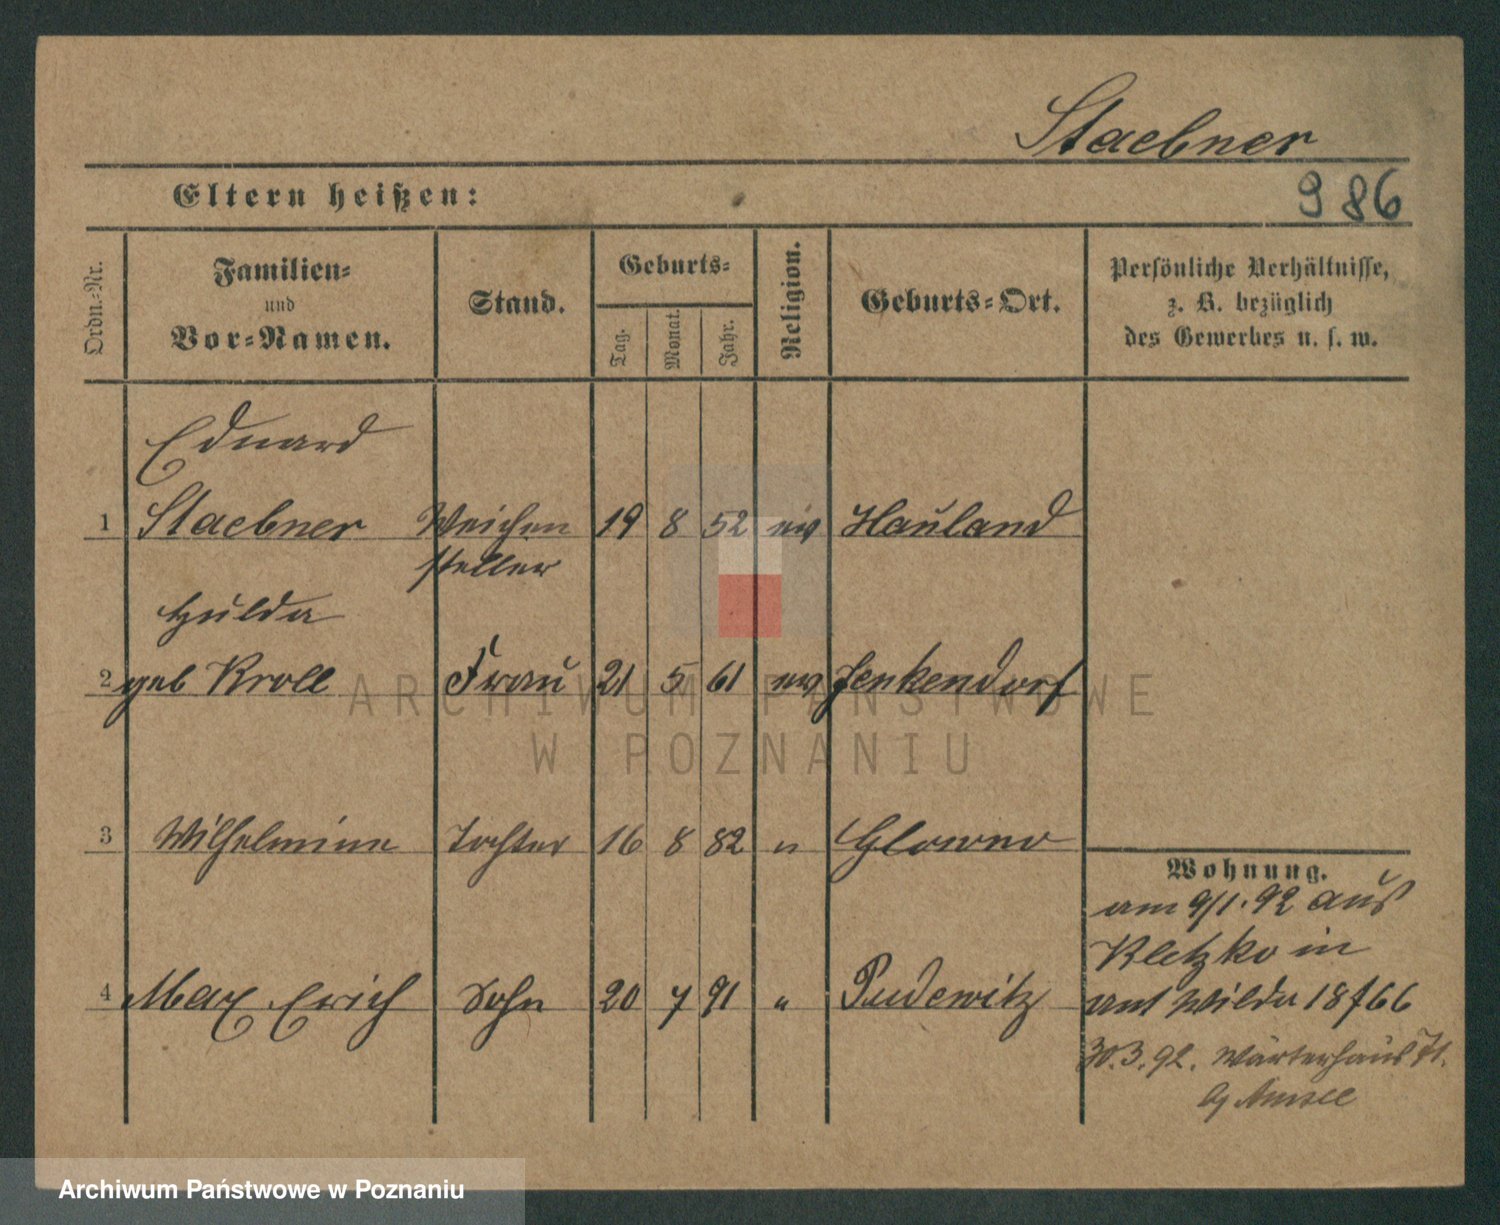 Staebner
Eltern heißen:
986
Ordn.-Nr.
Familien-
und
Vor-Namen.
Stand.
Geburts-
Tag.
Monat.
Jahr.
Religion.
Geburts-Ort.
Persönliche Verhältnisse,
z. B. bezüglich
des Gewerbes u. s. w.
Eduard
1 Staebner Weichen 19 8 52 ev Hauland
steller
Hulda
2 geb Kroll Frau 21 5 61 ev Jenkendorf
ARCHIWUM PAŃSTWOWE
W POZNANIU
3 Wilhelmine Tochter 16 8 82 " Glowno
Wohnung.
am 9/1.92 aus
Kletzko in
4 Max Erich Sohn 20 7 91 " Pudewitz
amt Wilda 18f66
30.3.92. Wärterhaus 71.
Archiwum Państwowe w Poznaniu